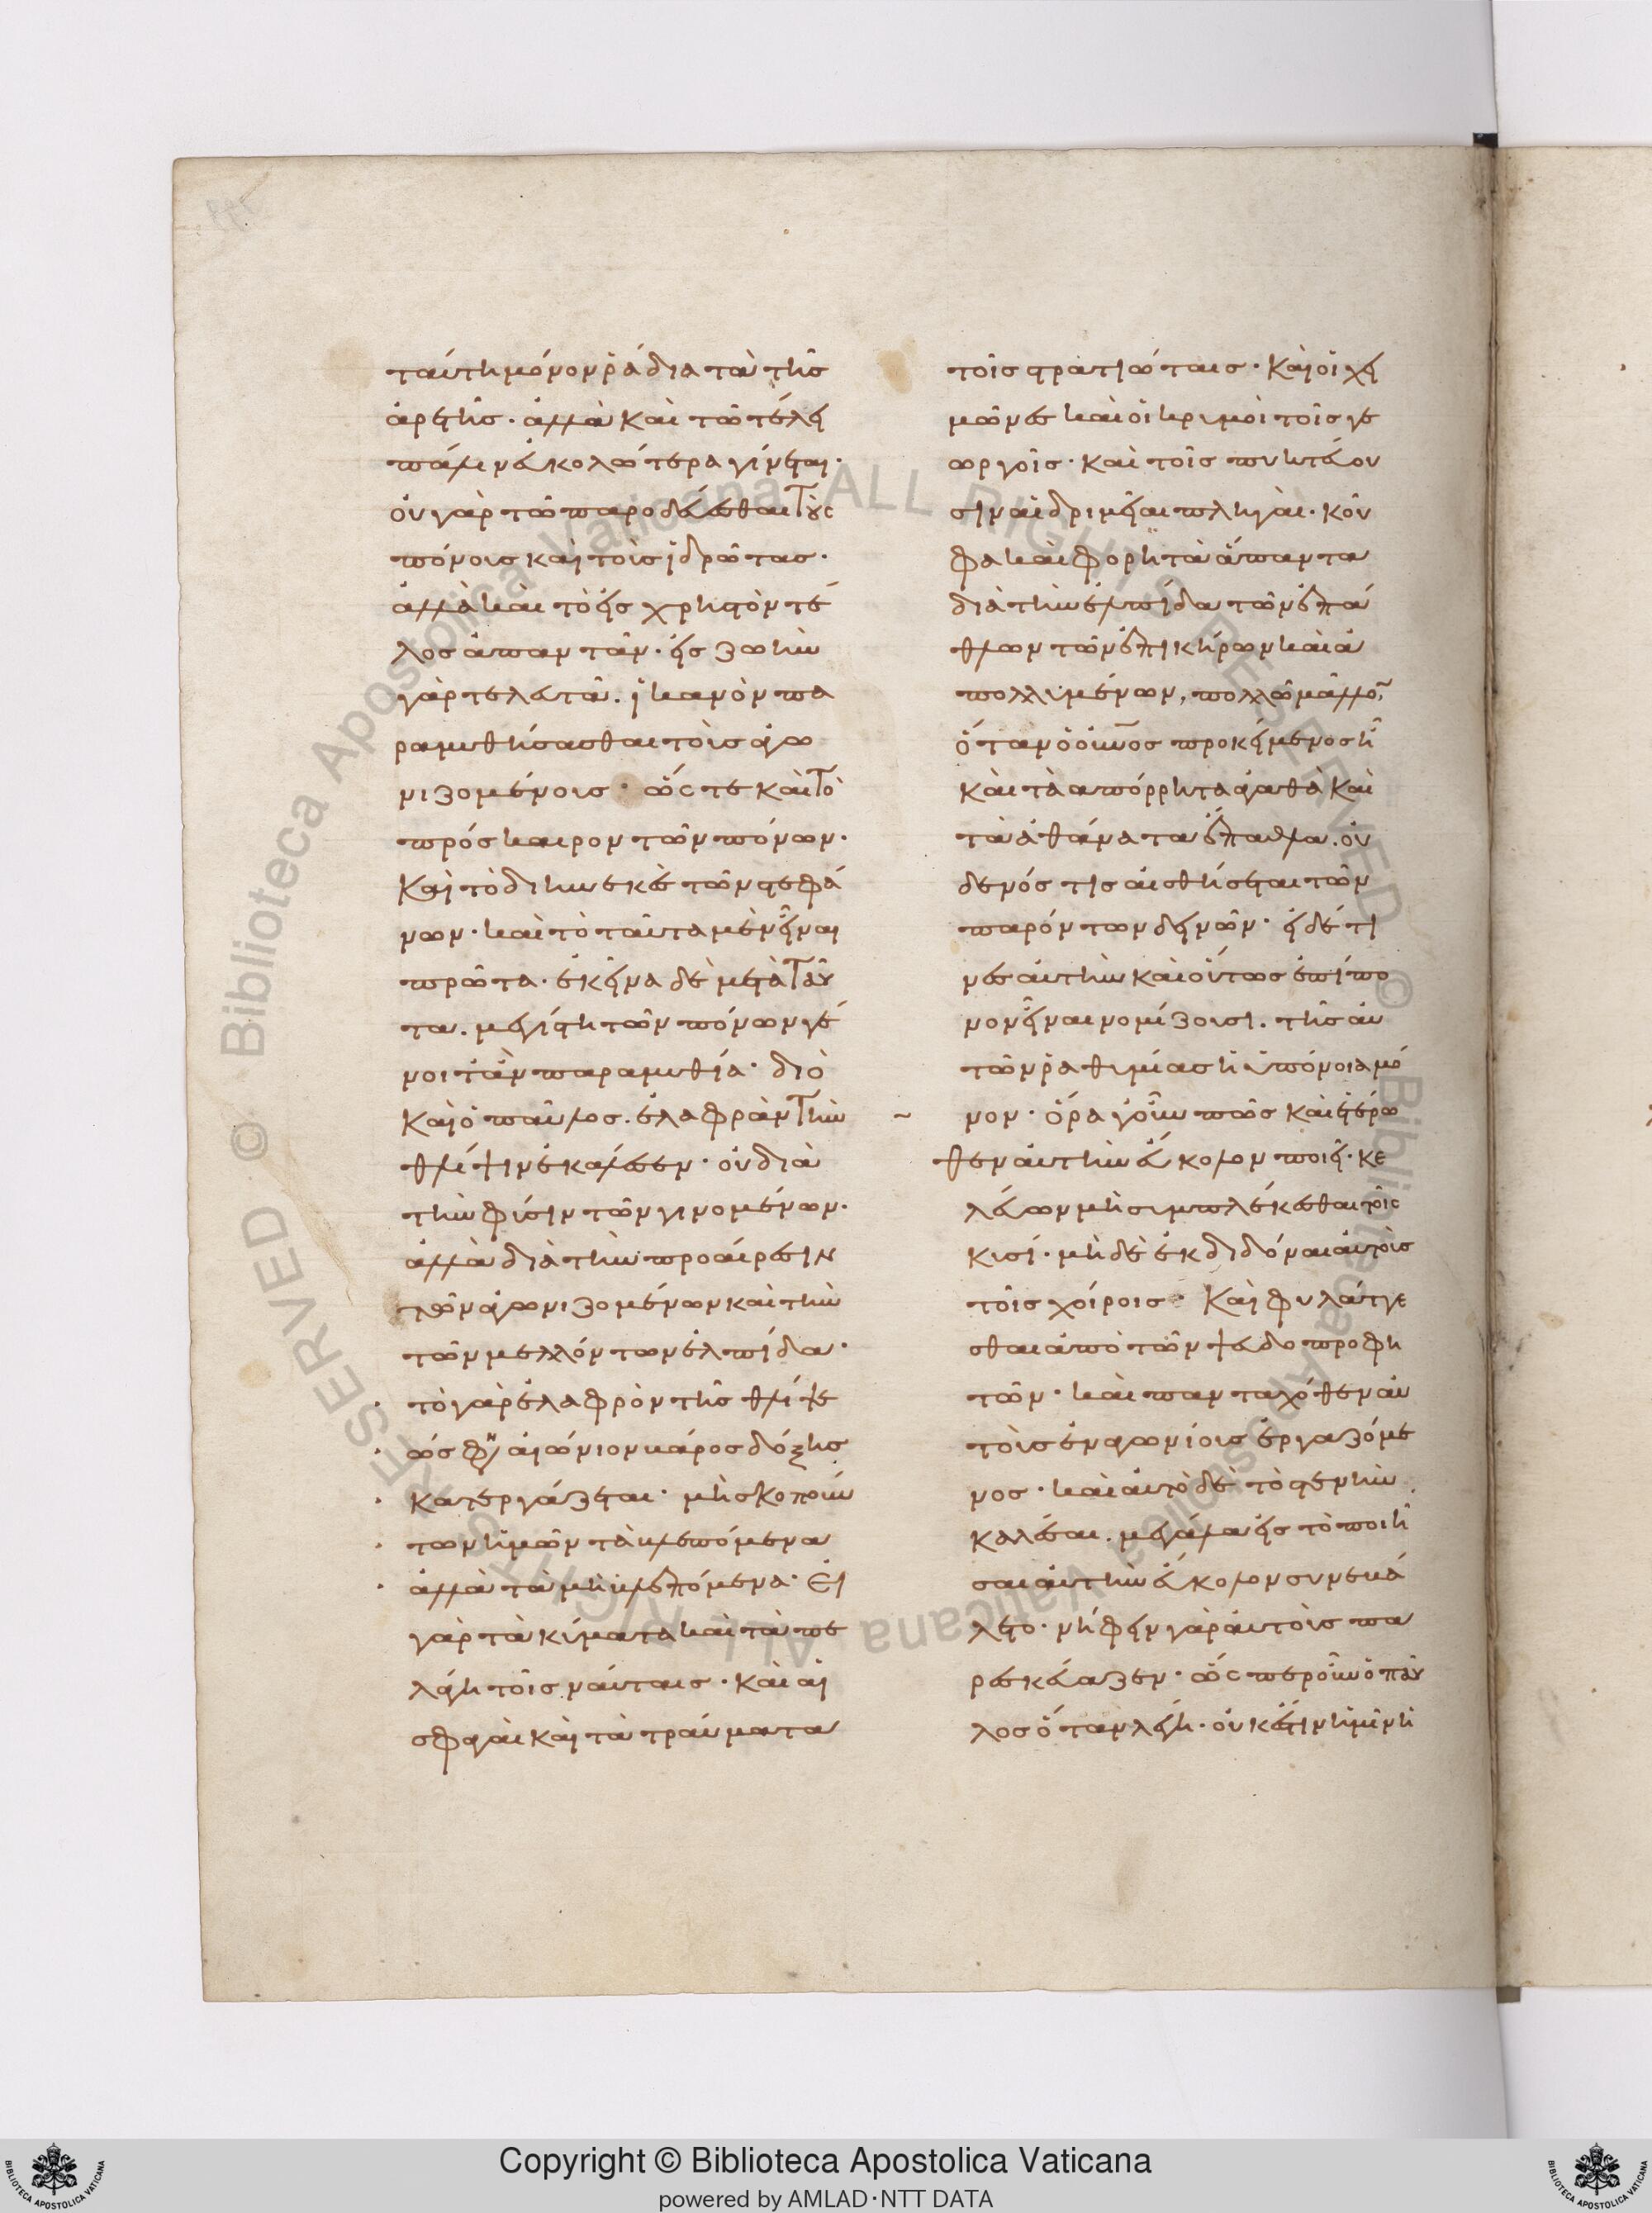 ταύτη μόνον ῥάδια τὰ τῆς
ἀρετῆς· ἀλλὰ καὶ τῶ τέλει
πάλιν εὐκολώτερα γίνεται·
οὐ γὰρ τῶ παροδεύεσθαι τοὺς
πόνους καὶ τοὺς ἱδρῶτας·
ἀλλὰ καὶ τὸ εἰς χρηστὸν τέ
λος ἀπαντᾶν· εἰς ζωὴν
γὰρ τελευτᾶ. ἱκανὸν πα
ραμυθήσασθαι τοὺς ἀγω
νιζομένους· ὥστε καὶ τὸ
πρόσκαιρον τῶν πόνων·
καὶ τὸ διηνεκὲς τῶν στεφά
νων· καὶ τὸ ταῦτα μὲν εἶναι
πρῶτα· ἐκεῖνα δὲ μετὰ ταῦ
τα. μεγίστη τῶν πόνων γέ
νοιτ' ἂν παραμυθία· διὸ
καὶ ὁ παῦλος. ἐλαφρὰν τὴν
θλίψιν ἐκάλεσεν· οὐ διὰ
τὴν φύσιν τῶν γινομένων·
ἀλλὰ διὰ τὴν προαίρεσιν
τῶν ἀγωνιζομένων καὶ τὴν
τῶν μελλόντων ἐλπίδα·
τὸ γὰρ ἐλαφρὸν τῆς θλίψε
ώς φη αἰώνιον βάρος δόξης
κατεργάζεται· μὴ σκοπούν
των ἡμῶν τὰ βλεπόμενα
ἀλλὰ τὰ μὴ βλεπόμενα· Εἰ
γὰρ τὰ κύματα καὶ τὰ πε
λάγη τοῖς ναύταις· καὶ αἱ
σφαγαὶ καὶ τὰ τραύματα
τοῖς στρατιώταις· καὶ οἱ χει
μῶνες καὶ οἱ κρυμοὶ τοῖς γε
ωργοῖς· καὶ τοῖς πυκτεύου
σιν αἱ δριμεῖαι πληγαὶ· κοῦ
φα καὶ φορητὰ ἅπαντα
διὰ τὴν ἐλπίδα τῶν ἐπά
θλων τῶν ἐπικήρων καὶ ἀ
πολλυμένων, πολλῶ μᾶλλον
ὅταν ὁ οὐνος προκείμενος ῆ
καὶ τὰ απόρρητα ἀγαθὰ καὶ
τὰ ἀθάνατα ἔπαθλα. οὐ
δενός τις αἰσθήσεται τῶν
παρόντων δεινῶν· εἰ δέ τι
νες αὐτὴν καὶ οὕτως ἐπίπο
νον εἶναι νομίζουσι. τῆς αὐ
τῶν ῥαθυμίας ἡ ὑπόνοια μό
νον· ὅρα γοῦν πῶς καὶ ἑτέρω
θεν αὐτὴν εὔκολον ποιεῖ· κε
λεύων μὴ συμπλέκεσθαι τοῖς
κυσί· μὴ δὲ ἐκδιδόναι αὐτοὺς
τοῖς χοίροις· Καὶ φυλάττε
σθαι ἀπὸ τῶν ψευδοπροφη
τῶν· καὶ πανταχόθεν αὐ
τοὺς ἐναγωνίους ἐργαζόμε
νος· καὶ αὐτὸ δὲ τὸ στενὴν
καλέσαι. μεγάλα εἰς τὸ ποιῆ
σαι αὐτὴν εὔκολον συνεβά
λετο· νήφειν γὰρ αὐτοὺς πα
ρεσκεύαζεν· ὥσπερ οὖν ὁ παῦ
λος ὅταν λέγη· οὐκ ἔστιν ἡμῖν ἡ